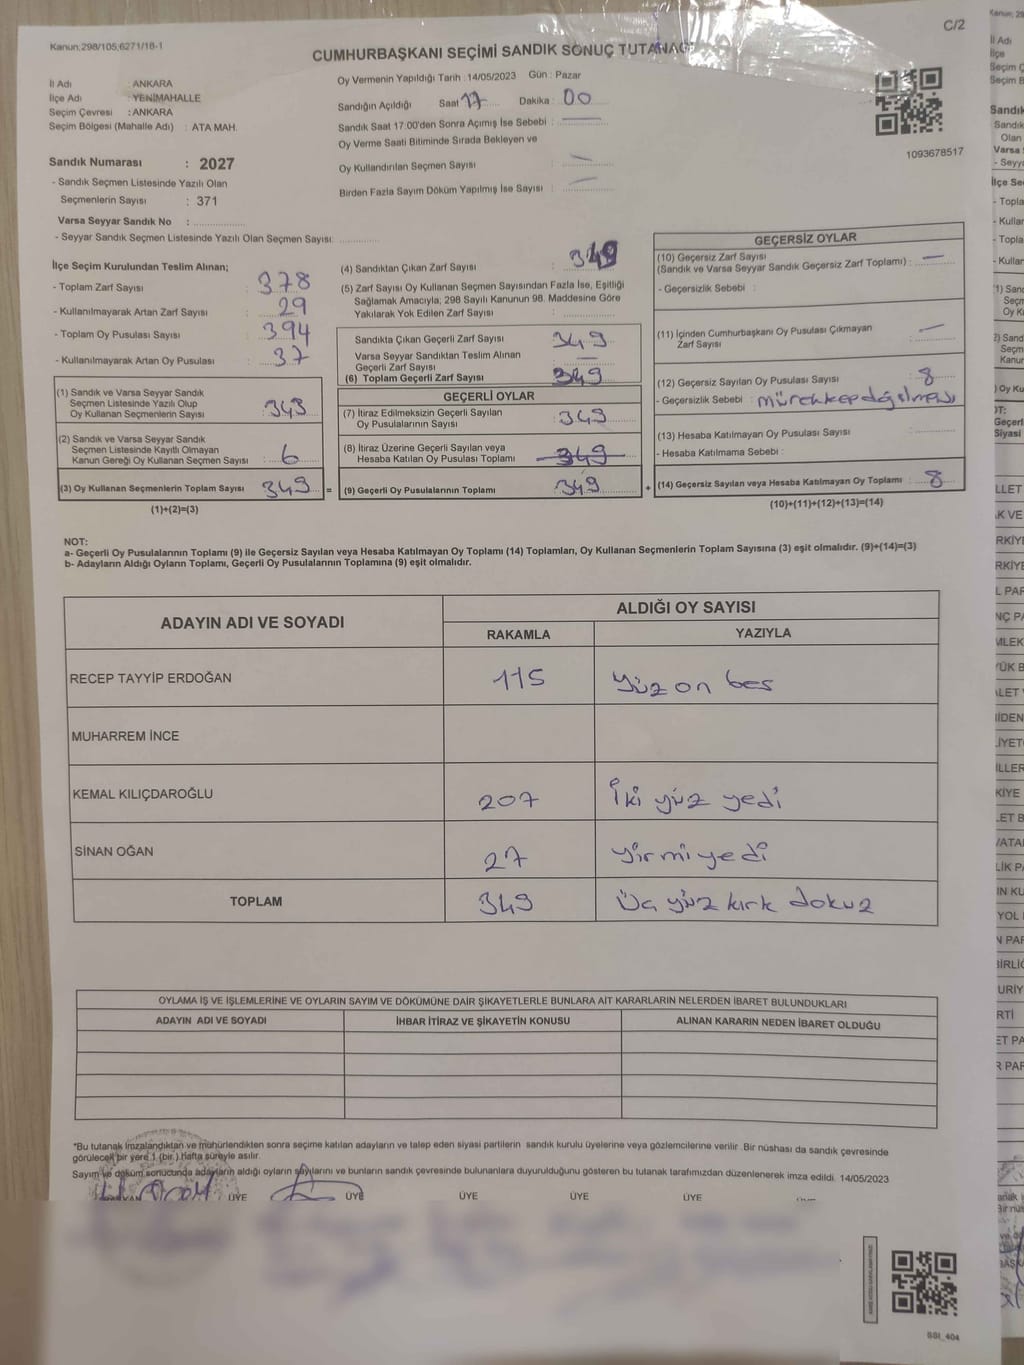 C/2
Kanun;298/105;6271/18-1
CUMHURBAŞKANI SEÇİMİ SANDIK SONUÇ TUTANAĞI
İl Adı : ANKARA
İlçe Adı : YENİMAHALLE
Seçim Çevresi : ANKARA
Seçim Bölgesi (Mahalle Adı) : ATA MAH.
Oy Vermenin Yapıldığı Tarih : 14/05/2023 Gün : Pazar
Sandığın Açıldığı Saat 17 Dakika : 00
Sandık Saat 17:00'den Sonra Açımış İse Sebebi :
Oy Verme Saati Bitiminde Sırada Bekleyen ve
Oy Kullandırılan Seçmen Sayısı : —
Birden Fazla Sayım Döküm Yapılmış İse Sayısı : —
1093678517
Sandık Numarası : 2027
- Sandık Seçmen Listesinde Yazılı Olan
Seçmenlerin Sayısı : 371
Varsa Seyyar Sandık No :
- Seyyar Sandık Seçmen Listesinde Yazılı Olan Seçmen Sayısı:
İlçe Seçim Kurulundan Teslim Alınan;
- Toplam Zarf Sayısı : 378
- Kullanılmayarak Artan Zarf Sayısı : 29
- Toplam Oy Pusulası Sayısı : 394
- Kullanılmayarak Artan Oy Pusulası : 37
(1) Sandık ve Varsa Seyyar Sandık
Seçmen Listesinde Yazılı Olup
Oy Kullanan Seçmenlerin Sayısı : 343
(2) Sandık ve Varsa Seyyar Sandık
Seçmen Listesinde Kayıtlı Olmayan
Kanun Gereği Oy Kullanan Seçmen Sayısı : 6
(3) Oy Kullanan Seçmenlerin Toplam Sayısı 349 =
(1)+(2)=(3)
(4) Sandıktan Çıkan Zarf Sayısı : 349
(5) Zarf Sayısı Oy Kullanan Seçmen Sayısından Fazla İse, Eşitliği
Sağlamak Amacıyla; 298 Sayılı Kanunun 98. Maddesine Göre
Yakılarak Yok Edilen Zarf Sayısı :
Sandıkta Çıkan Geçerli Zarf Sayısı 349
Varsa Seyyar Sandıktan Teslim Alınan
Geçerli Zarf Sayısı —
(6) Toplam Geçerli Zarf Sayısı 349
GEÇERLİ OYLAR
(7) İtiraz Edilmeksizin Geçerli Sayılan
Oy Pusulalarının Sayısı : 349
(8) İtiraz Üzerine Geçerli Sayılan veya
Hesaba Katılan Oy Pusulası Toplamı 349
(9) Geçerli Oy Pusulalarının Toplamı 349 +
GEÇERSİZ OYLAR
(10) Geçersiz Zarf Sayısı
(Sandık ve Varsa Seyyar Sandık Geçersiz Zarf Toplamı) : —
- Geçersizlik Sebebi :
(11) İçinden Cumhurbaşkanı Oy Pusulası Çıkmayan
Zarf Sayısı : —
(12) Geçersiz Sayılan Oy Pusulası Sayısı : 8
- Geçersizlik Sebebi : mürekkep dağılması
(13) Hesaba Katılmayan Oy Pusulası Sayısı :
- Hesaba Katılmama Sebebi :
(14) Geçersiz Sayılan veya Hesaba Katılmayan Oy Toplamı : 8
(10)+(11)+(12)+(13)=(14)
NOT:
a- Geçerli Oy Pusulalarının Toplamı (9) ile Geçersiz Sayılan veya Hesaba Katılmayan Oy Toplamı (14) Toplamları, Oy Kullanan Seçmenlerin Toplam Sayısına (3) eşit olmalıdır. (9)+(14)=(3)
b- Adayların Aldığı Oyların Toplamı, Geçerli Oy Pusulalarının Toplamına (9) eşit olmalıdır.
ADAYIN ADI VE SOYADI
ALDIĞI OY SAYISI
RAKAMLA YAZIYLA
RECEP TAYYİP ERDOĞAN 115 yüz on beş
MUHARREM İNCE
KEMAL KILIÇDAROĞLU 207 İki yüz yedi
SİNAN OĞAN 27 yirmi yedi
TOPLAM 349 Üç yüz kırk dokuz
OYLAMA İŞ VE İŞLEMLERİNE VE OYLARIN SAYIM VE DÖKÜMÜNE DAİR ŞİKAYETLERLE BUNLARA AİT KARARLARIN NELERDEN İBARET BULUNDUKLARI
ADAYIN ADI VE SOYADI İHBAR İTİRAZ VE ŞİKAYETİN KONUSU ALINAN KARARIN NEDEN İBARET OLDUĞU
*Bu tutanak imzalandıktan ve mühürlendikten sonra seçime katılan adayların ve talep eden siyasi partilerin sandık kurulu üyelerine veya gözlemcilerine verilir. Bir nüshası da sandık çevresinde
görülecek bir yere 1 (bir ) Hafta süreyle asılır.
Sayım ve döküm sonucunda adayların aldığı oyların sayılarını ve bunların sandık çevresinde bulunanlara duyurulduğunu gösteren bu tutanak tarafımızdan düzenlenerek imza edildi. 14/05/2023
ÜYE ÜYE ÜYE ÜYE ÜYE
SSI_404